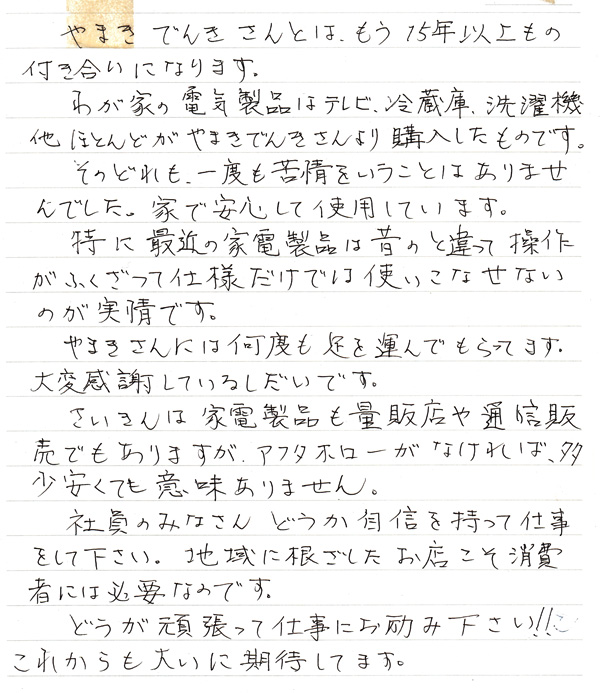 やまきでんきさんとは、もう15年以上もの
付き合いになります。
わが家の電気製品はテレビ、冷蔵庫、洗濯機
他ほとんどがやまきでんきさんより購入したものです。
そのどれも、一度も苦情をいうことはありませ
んでした。家で安心して使用しています。
特に最近の家電製品は昔のと違って操作
がふくざつで仕様だけでは使いこなせない
のが実情です。
やまきさんには何度も足を運んでもらってます。
大変感謝しているしだいです。
さいきんは家電製品も量販店や通信販
売でもありますが、アフタホローがなければ、多
少安くても意味ありません。
社員のみなさんどうか自信を持って仕事
をして下さい。地域に根ざしたお店こそ消費
者には必要なのです。
どうが頑張って仕事にお励み下さい!!
これからも大いに期待してます。